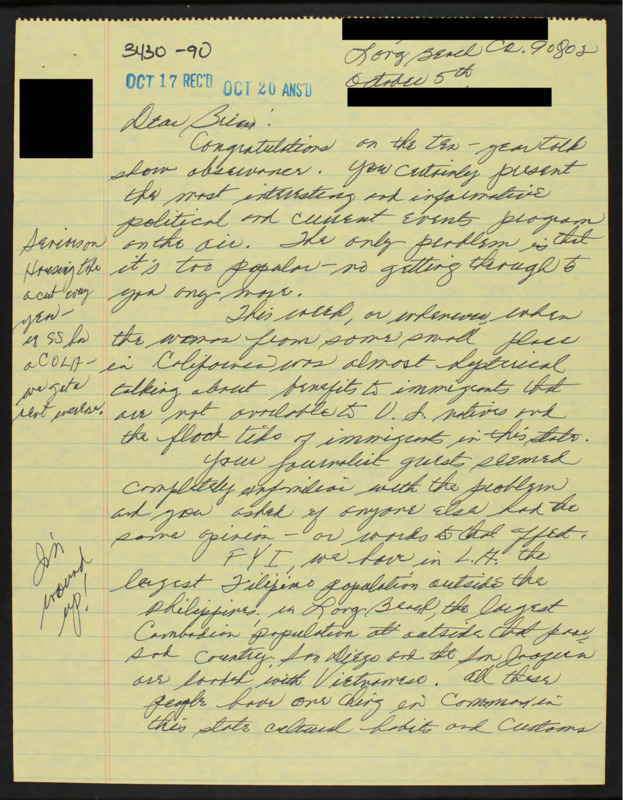 3430-90
OCT 17 REC'D OCT 20 ANS'D
Long Beach Ca. 90802
October 5th
Dear Brian:
Congratulations on the ten-year talk
show observance. You certainly present
the most interesting and informative
political and current events program
on the air. The only problem is that
it's too popular - no getting through to
you any more.
This week, or whenever, when
the woman from some small place
in California was almost hysterical
talking about benefits to immigrants that
are not available to U.S. natives and
the flood tide of immigrants in this state.
Your journalist guests seemed
completely unfamiliar with the problem
and you asked if anyone else had the
same opinion - or words to that affect.
FYI, we have in L.A. the
largest Filipino population outside the
Philippines, in Long Beach, the largest
Cambodian population outside that poor,
sad country. San Diego and the San Joaquin
are loaded with Vietnamese. All these
people have one thing in common in
this state cultural habits and customs
Seniors on
Housing take
a cut every
year -
if SS has
a COLA -
we get a
rent increase.
I'm
wound
up!